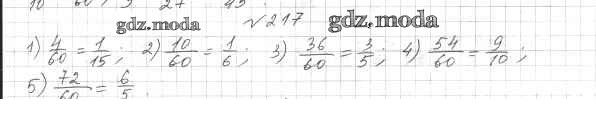 №217
gdz.moda gdz.moda
1) 4/60 = 1/15; 2) 10/60 = 1/6; 3) 36/60 = 3/5; 4) 54/60 = 9/10;
5) 72/60 = 6/5